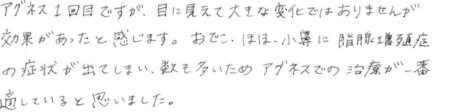 アグネス1回目ですが、目に見えて大きな変化ではありませんが
効果があったと感じます。おでこ、ほほ、小鼻に脂腺増殖症
の症状が出てしまい、数も多いためアグネスでの治療が一番
適していると思いました。